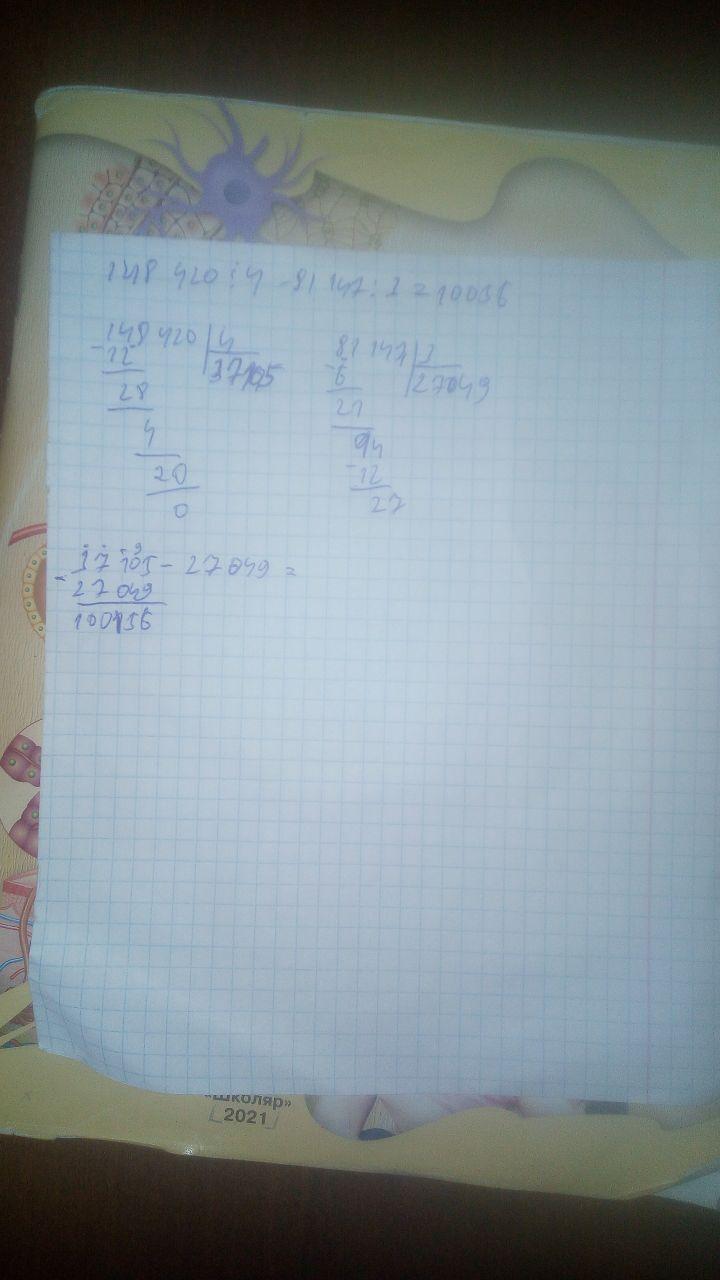 148 420 : 4 - 81 147 : 3 = 10056
148 420 | 4
-12
37105
28
4
20
0
81 147 | 3
-6
27049
21
14
-12
27
37 105 - 27 049 =
-27 049
10056
«Школяр»
2021